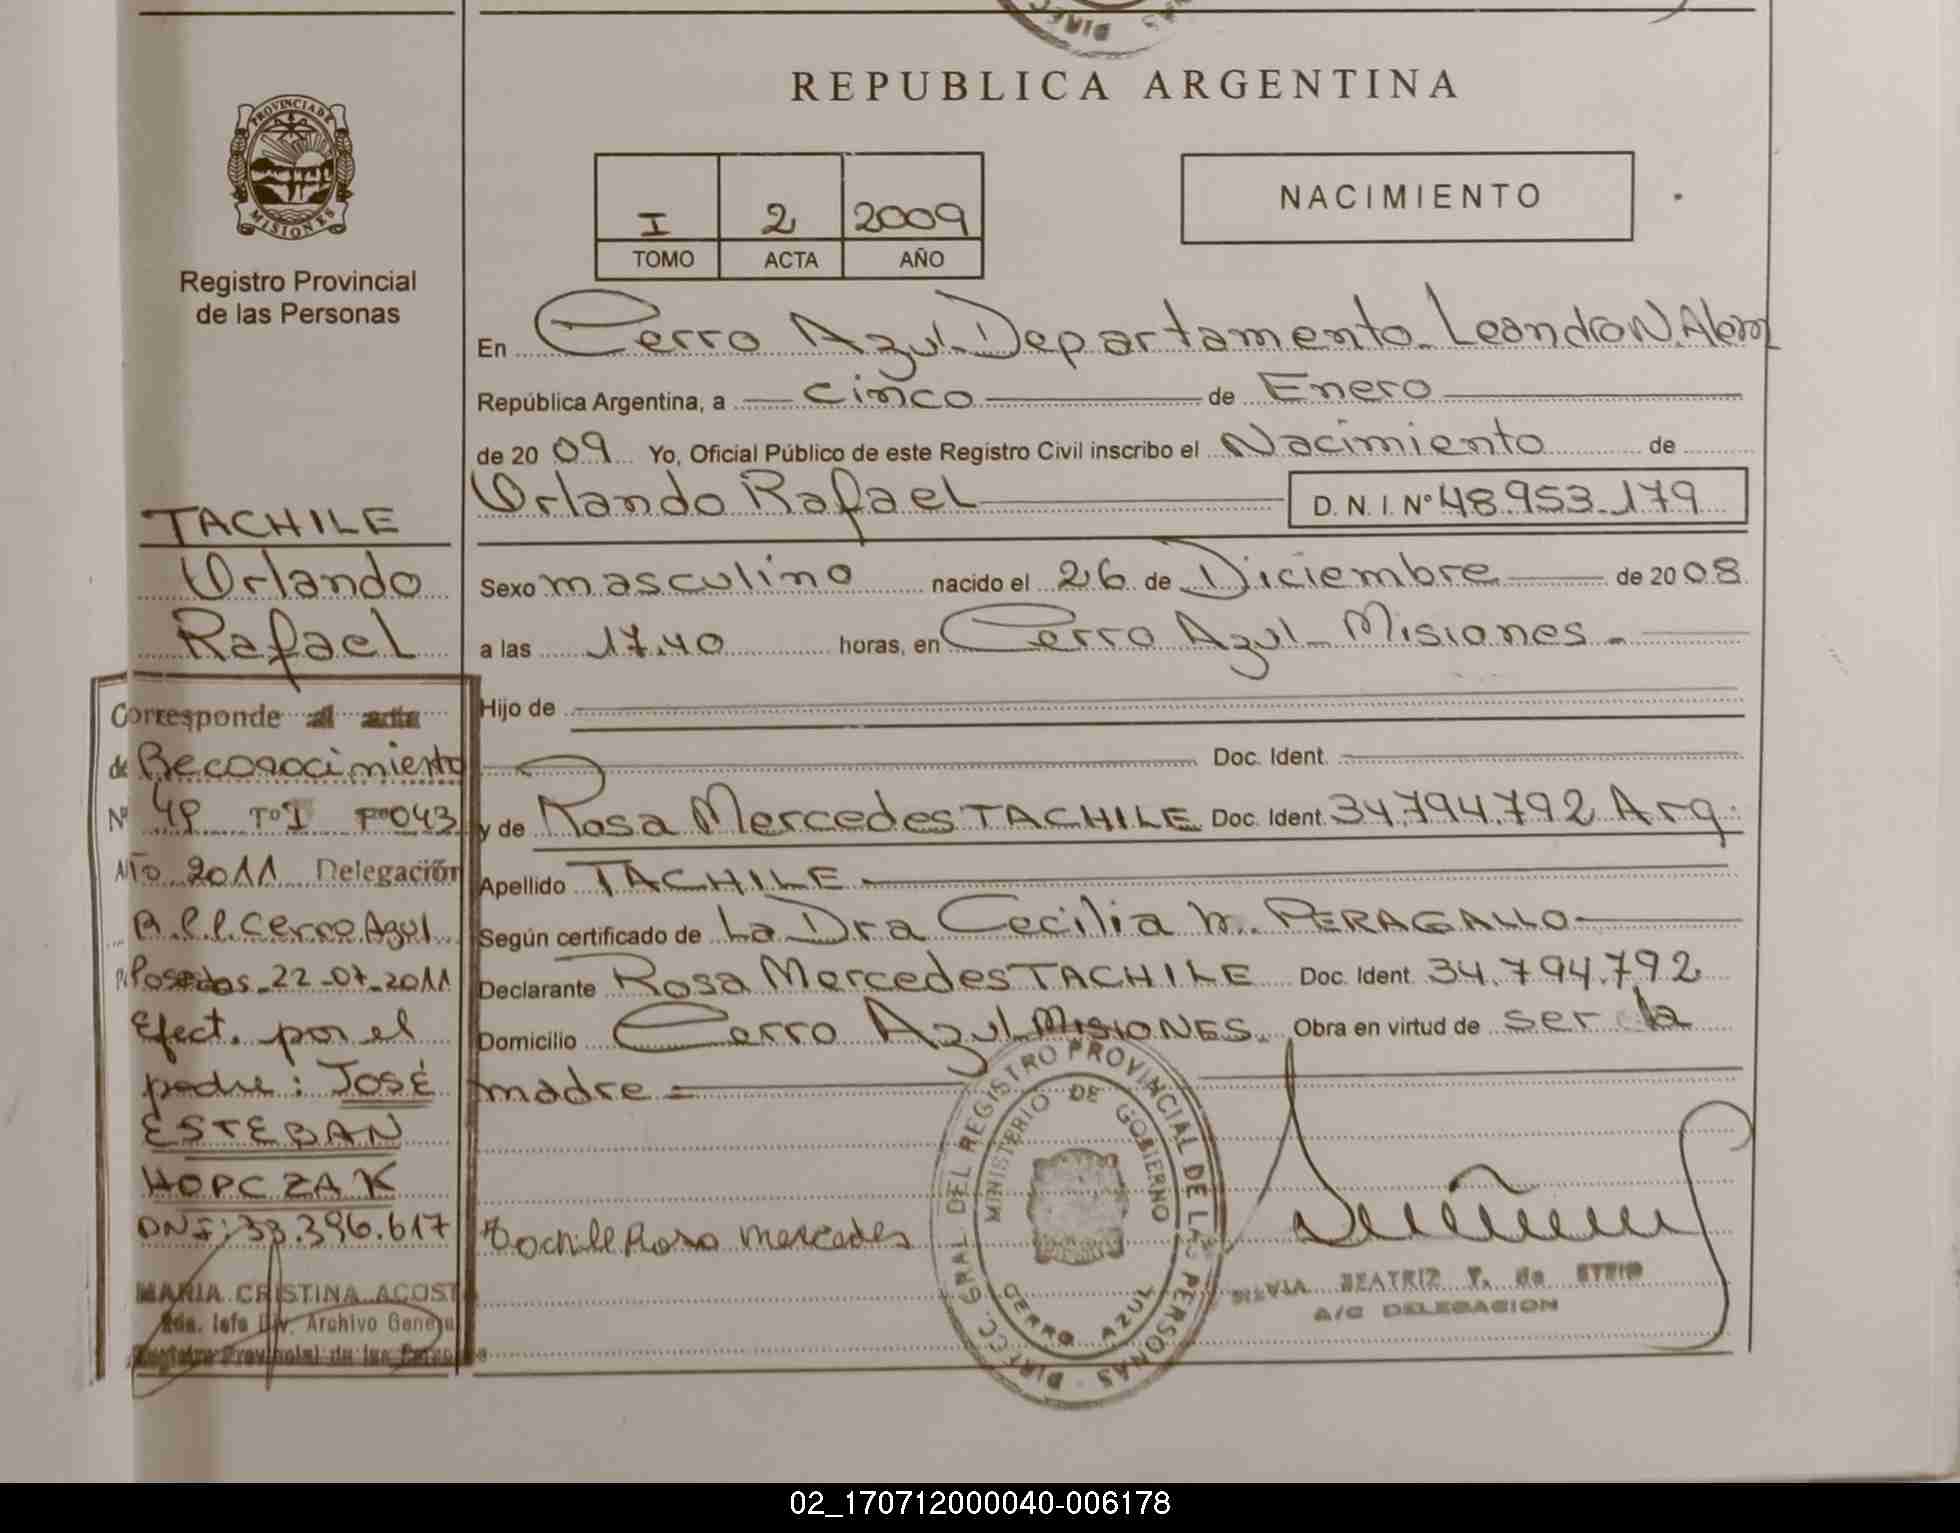 REPUBLICA ARGENTINA
PROVINCIA DE MISIONES
Registro Provincial
de las Personas
I 2 2009
TOMO ACTA AÑO
NACIMIENTO
En Cerro Azul Departamento Leandro N. Alem
República Argentina, a cinco de Enero
de 20 09 Yo, Oficial Público de este Registro Civil inscribo el Nacimiento de
Orlando Rafael D. N. I. Nº 48.953.179
Sexo masculino nacido el 26 de Diciembre de 20 08
a las 17.40 horas, en Cerro Azul Misiones
Hijo de
Doc. Ident.
y de Rosa Mercedes TACHILE Doc. Ident. 34.794.792 Arg.
Apellido TACHILE
Según certificado de La Dra Cecilia M. PERAGALLO
Declarante Rosa Mercedes TACHILE Doc. Ident. 34.794.792
Domicilio Cerro Azul MISIONES. Obra en virtud de ser la
madre
Tachile Rosa mercedes
TACHILE
Orlando
Rafael
Corresponde al acta
de Reconocimiento
Nº 49 Tº I Fº 043
AÑO 2011 Delegación
R.P.P. Cerro Azul
Posadas 22-07-2011
Efect. por el
padre: JOSÉ
ESTEBAN
HOPCZAK
DNI: 33.396.617
MARIA CRISTINA ACOST
Archivo General
Registro Provincial de las Personas
DIRECC. GRAL. DEL REGISTRO PROVINCIAL DE LAS PERSONAS
MINISTERIO DE GOBIERNO
CERRO AZUL
SILVIA BEATRIZ de
A/C DELEGACION
02_170712000040-006178